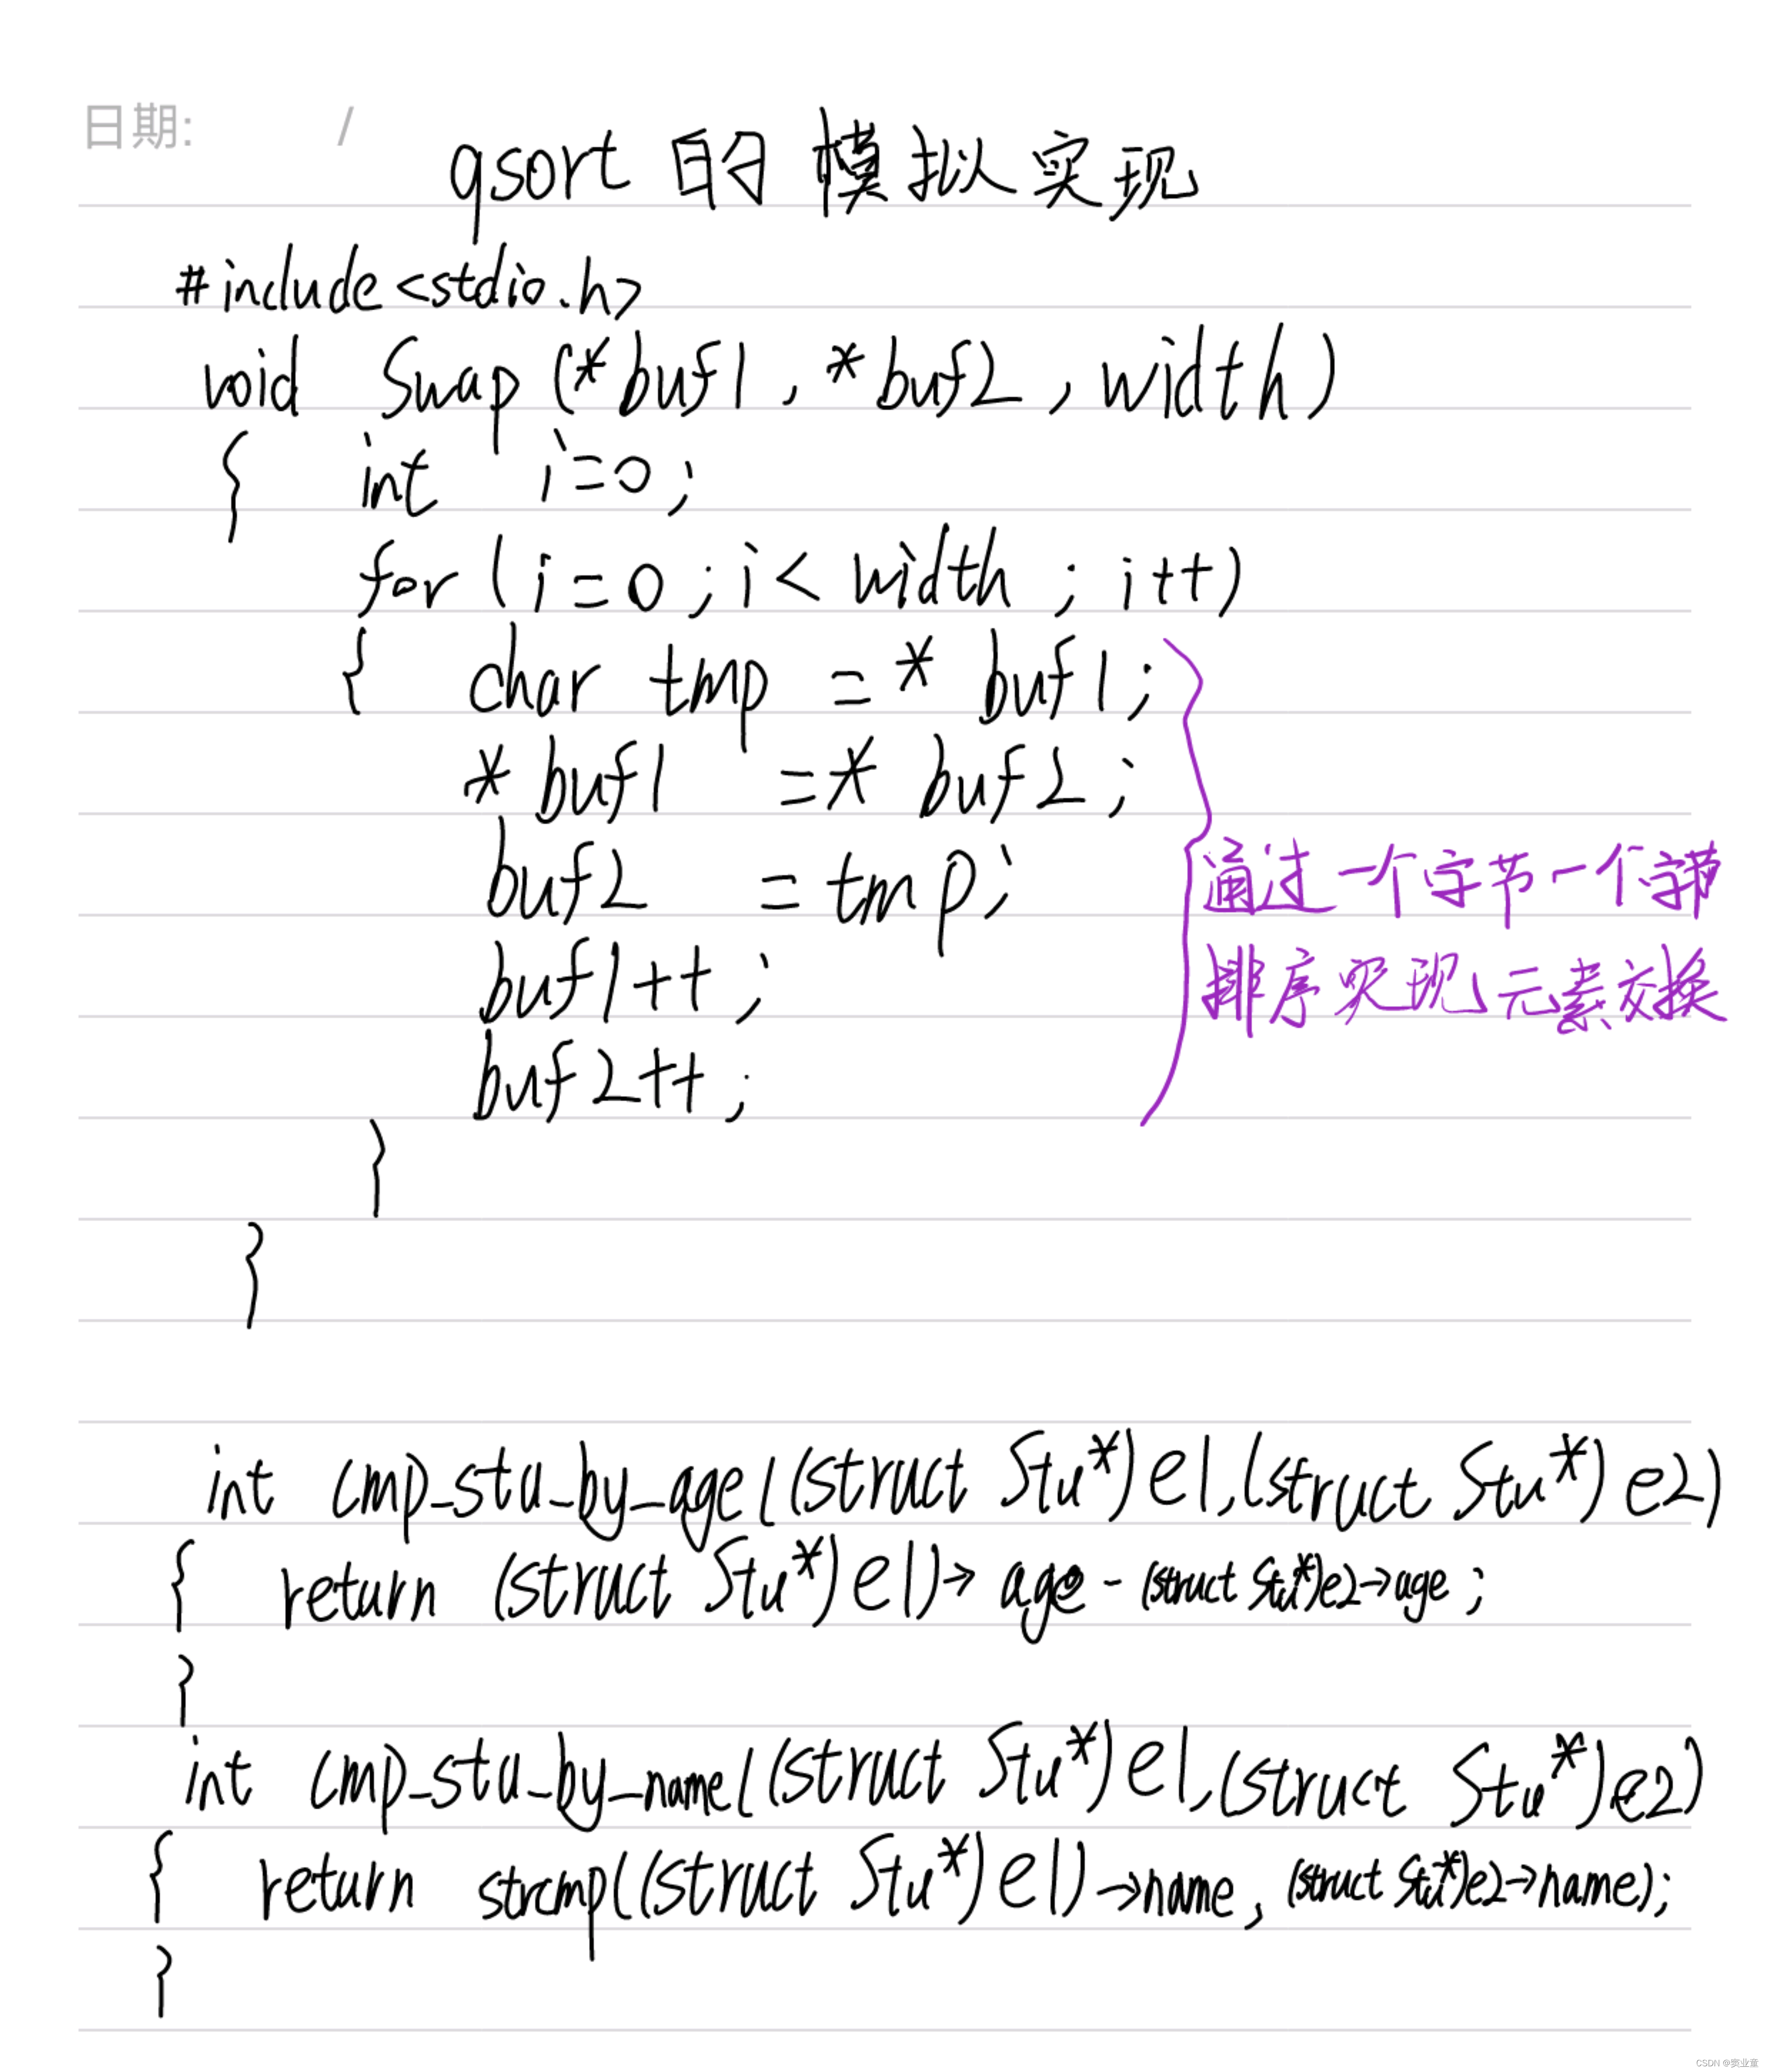 日期: /
qsort 的模拟实现
#include<stdio.h>
void Swap (*buf1, *buf2, width)
{ int i=0;
for (i=0; i< width ; i++)
{ char tmp =* buf1;
*buf1 =* buf2;
buf2 = tmp;
buf1++;
buf2++;
}
}
通过一个字节一个字节
排序实现元素交换
int cmp_stu_by_age((struct Stu*)e1,(struct Stu*)e2)
{ return (struct Stu*)e1)->age - (struct Stu*)e2->age;
}
int cmp_stu_by_name((struct Stu*)e1,(struct Stu*)e2)
{ return strcmp((struct Stu*)e1)->name, (struct Stu*)e2->name);
}
CSDN @窦业童